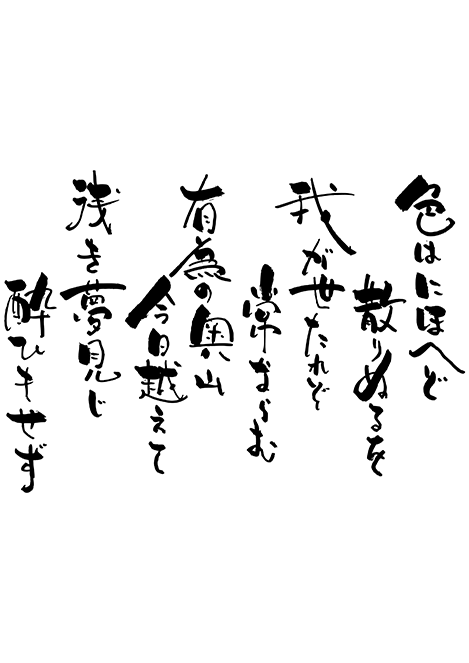 色はにほへど
散りぬるを
我が世たれぞ
常ならむ
有為の奥山
今日越えて
浅き夢見じ
酔ひもせず